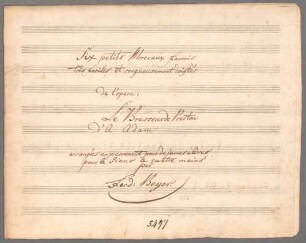 Six petits Morceaux favoris
très faciles et soigneusement doigtés
de l'opera:
Le Brasseur de Preston
d'A Adam
arrangées expressement pour de jeunes élèves
pour le Piano à quatre mains
par
Ferd: Beyer
5497